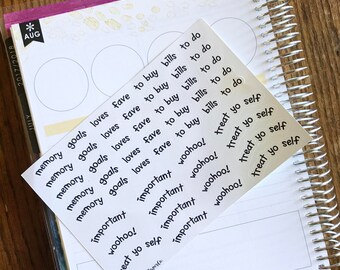 AUG
memory goals loves fave to buy bills to do
memory goals loves fave to buy bills to do
memory goals loves fave to buy bills to do
memory goals loves fave to buy bills to do
important woohoo! treat yo self
important woohoo! treat yo self
important woohoo! treat yo self
important
woohoo!
treat yo self